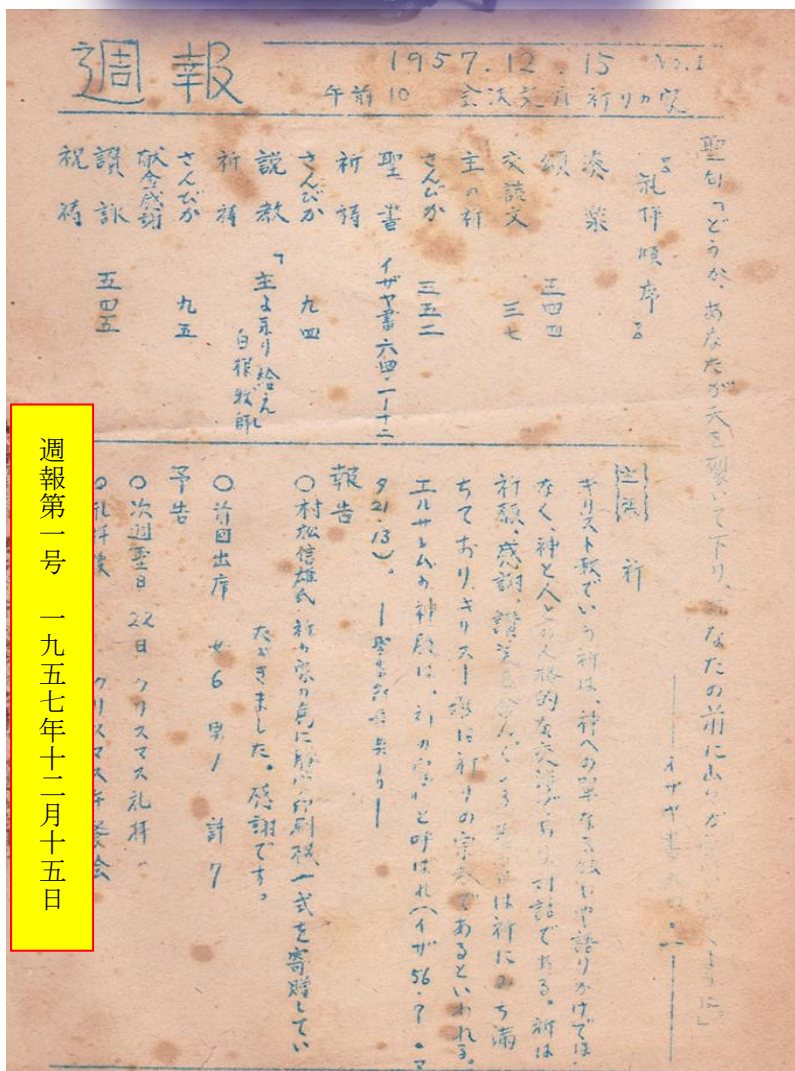 週報
1957.12.15 No.1
午前10
聖句「どうか、あなたが天を裂いて下り、あなたの前に山々が
イザヤ書
礼拝順序
奏楽
頌 三四四
交読文 三七
主の祈
さんびか 三五二
聖書 イザヤ書六四・一―十二
祈祷
さんびか 九四
説教 「主よ来り給え」
白根牧師
祈祷
さんびか 九五
献金感謝
讃詠 五四五
祝祷
祈
キリスト教でいう祈は、神への単なる 語りかけでは
なく、神と人との人格的な交渉であり対話である。祈は
祈願、感謝、讃美を含んでいる は祈にみち満
ちており、キリスト教は祈りの宗教であるといわれる。
エルサレムの神殿は、祈の家と呼ばれ(イザ56・7・マ
タ21・13)。 ―聖書 より―
報告
○村松信雄氏 祈の家の為に謄写印刷機一式を寄贈してい
ただきました。感謝です。
○前回出席 女6 男1 計7
予告
○次週聖日 22日 クリスマス礼拝
○礼拝後 クリスマス 会
週報第一号 一九五七年十二月十五日